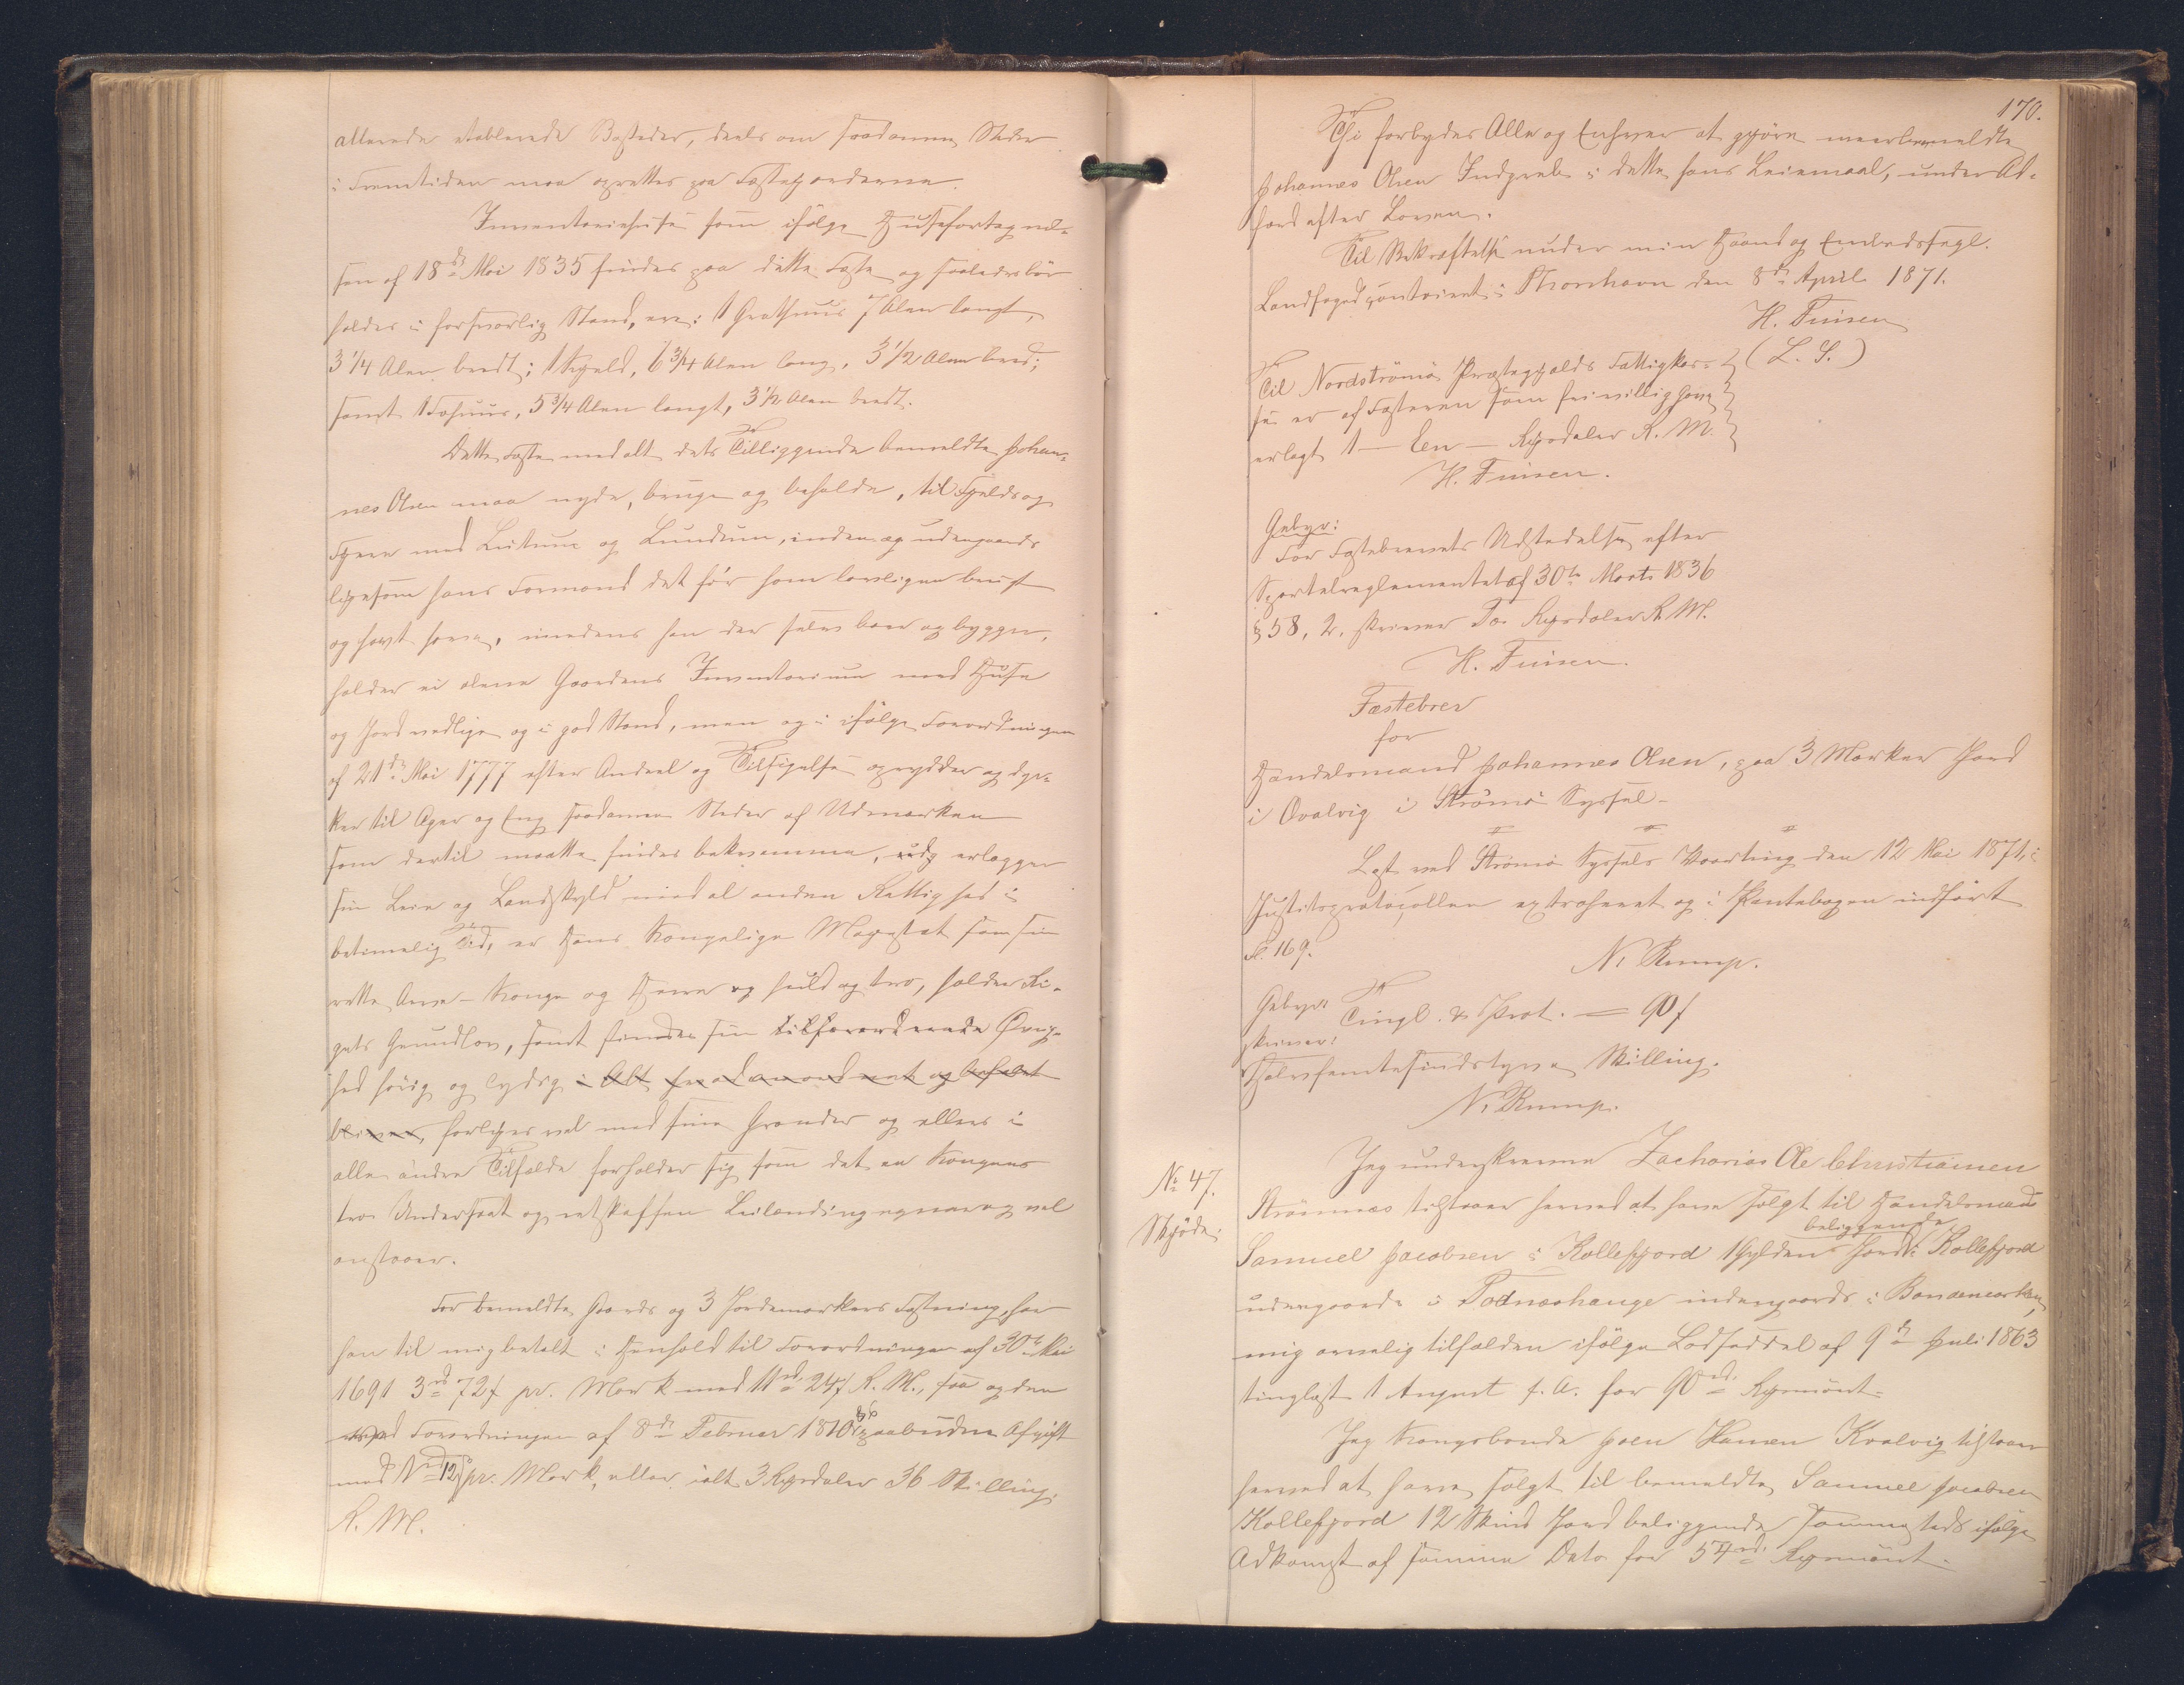 allerede etablerede Bosteder, deels om saadanne Steder
i Fremtiden maa oprettes paa Fæstejorderne.
Inventariehuse som ifølge Huusefortegnel-
sen af 18de Mai 1835 findes paa dette Fæste og saaledes bør
holdes i forsvarlig Stand, ere: 1 Grathuus 7 Alen langt,
3 1/4 Alen bredt; 1 Hjeld, 6 3/4 Alen lang, 3 1/2 Alen bred;
samt 1 Fæhuus, 5 3/4 Alen langt, 3 1/2 Alen bredt.
Dette Fæste med alt dets Tilliggende bemeldte Johan-
nes Olsen maa nyde, bruge og beholde, til Fjelds og
Fjære med Luttum og Lundum, inden og udengaards
ligesom hans Formand det før ham lovligen brugt
og havt haver, imedens han der selv boer og bygger,
holder ei alene Gaardens Inventarium med Huse
og Jord vedlige og i god Stand, men og i ifølge Forordningen
af 21de Mai 1777 efter Andeel og Tilsigelse oprydder og dyr-
ker til Ager og Eng saadanne Steder af Udmarken
som dertil maatte findes bekvemme, udg erlægger
sin Leie og Landskyld med al anden Rettighed i
betimelig Tid, er Hans Kongelige Majestæt som sin
rette Arve-Konge og Herre og huld og tro, holder Ri-
gets Grundlov, samt sin tilforordnede Øvrig-
hed hørig og lydig i Alt hvad anordnet og befalet
bliver, forliges vel med sine Grander og ellers i
alle andre Tilfælde forholder sig som det en Kongens
tro Undersaat og retskaffen Leilænding egner og vel
anstaaer.
For bemeldte Gaards og 3 Jordemarkers Fæstning, har
han til mig betalt i Henhold til Forordningen af 30te Mai
1691 3rd 72ß pr. Mark med 11rd 24ß R. M., saa og den
ved Forordningen af 8de Februar 1810 paabudne Afgift
med 1rd 12ß pr. Mark, eller ialt 3 Rigsdaler 36 Skilling
R. M.
170.
Thi forbydes Alle og Enhver at gjøre meerbemeldte
Johannes Olsen Indgreb i dette hans Leiemaal, under Til-
fald efter Loven.
Til Bekræftelse under min Haand og Embedssegl.
Landfogedcontoiret i Thorshavn den 8de April 1871.
H. Finsen
(L. S.)
Til Nordstrømø Præstegjelds Fattigkas-
se er af Fæsteren som frivillig Gave
erlagt 1 – Een – Rigsdaler R. M.
H. Finsen.
Gebyr:
For Fæstebrevets Udstedelse efter
Sportelreglementet af 30te Marts 1836
§ 58, 2, skriver To Rigsdaler R. M.
H. Finsen.
Fæstebrev
for
Handelsmand Johannes Olsen, paa 3 Marker Jord
i Qvalvig i Strømø Syssel –
Læst ved Strømø Syssels Vaarting den 12 Mai 1871, i
Justitsprotocollen extraheret og i Pantebogen indført
fol. 169.
N. Rump.
Gebyr: Tingl. & Prot. = 90ß
skriver:
Halvfemtesindstyve Skilling.
N. Rump.
No 47.
Skjøde.
Jeg underskrevne Zacharias Ole Christiansen
Strømnæs tilstaaer herved at have solgt til Handelsmand
beliggende
Samuel Jacobsen i Kollefjord 1 Gylden Jord i Kollefjord
udengaards i Todneshauge indengaards i Bondemarken,
mig arvelig tilfalden ifølge Lodseddel af 9de Juli 1863
tinglæst 1 August s. A. for 90rd. Rigsmønt.
Jeg Kongsbonde Joen Hansen Kvalvig tilstaaer
herved at have solgt til bemeldte Samuel Jacobsen
Kollefjord 12 Skind Jord beliggende sammesteds ifølge
Adkomst af samme Dato for 54rd. Rigsmønt.